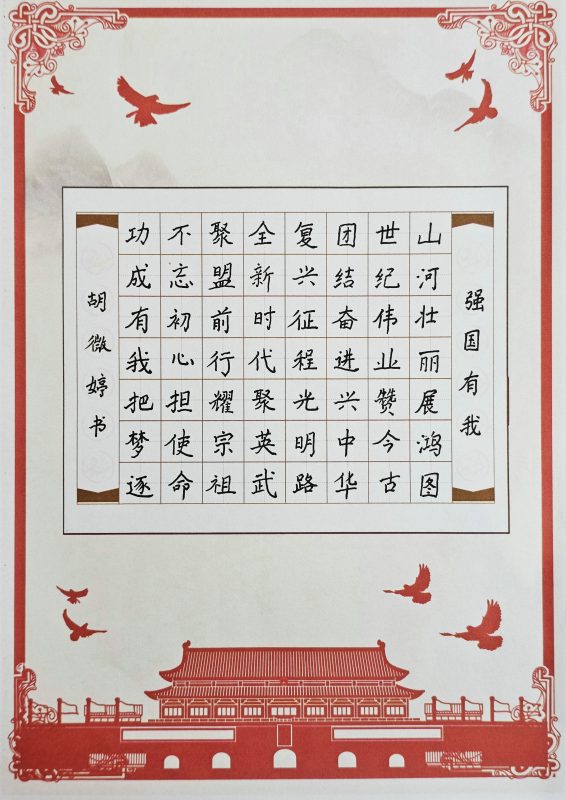 强国有我
山河壮丽展鸿图
世纪伟业赞今古
团结奋进兴中华
复兴征程光明路
全新时代聚英武
聚盟前行耀宗祖
不忘初心担使命
功成有我把梦逐
胡微婷书